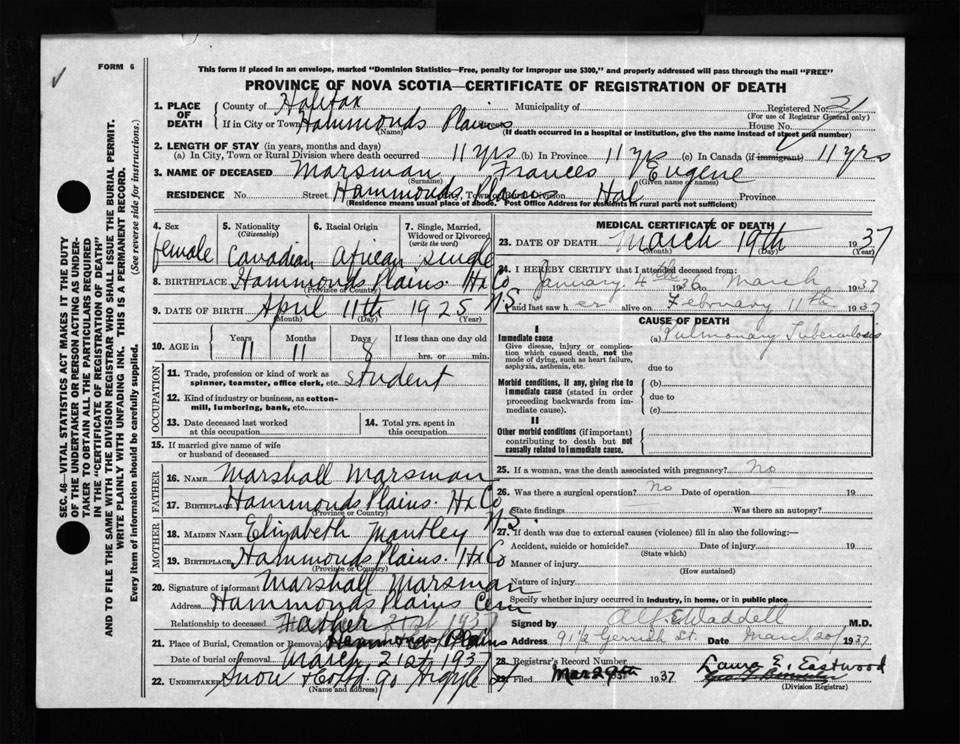 FORM 6
This form if placed in an envelope, marked "Dominion Statistics—Free, penalty for improper use $300," and properly addressed will pass through the mail "FREE"
PROVINCE OF NOVA SCOTIA—CERTIFICATE OF REGISTRATION OF DEATH
1. PLACE OF DEATH
County of Halifax Municipality of Registered No. 21
(For use of Registrar General only)
If in City or Town Hammonds Plains Street House No.
(Name) (If death occurred in a hospital or institution, give the name instead of street and number)
2. LENGTH OF STAY (in years, months and days)
(a) In City, Town or Rural Division where death occurred 11 yrs (b) In Province 11 yrs (c) In Canada (if immigrant) 11 yrs
3. NAME OF DECEASED Marsman Frances Eugene
(Surname) (Given name or names)
RESIDENCE No. Street Hammonds Plains City, Town or Rural Division Hal Province
(Residence means usual place of abode. Post Office Address for residents in rural parts not sufficient)
4. Sex
female
5. Nationality
(Citizenship)
Canadian
6. Racial Origin
African
7. Single, Married, Widowed or Divorced
(write the word)
single
8. BIRTHPLACE Hammonds Plains. Hx Co
N.S.
(Province or Country)
9. DATE OF BIRTH April 11th 1925
(Month) (Day) (Year)
10. AGE in
Years Months Days If less than one day old
11 11 8 hrs. or min.
OCCUPATION
11. Trade, profession or kind of work as spinner, teamster, office clerk, etc. student
12. Kind of industry or business, as cotton-mill, lumbering, bank, etc.
13. Date deceased last worked at this occupation
14. Total yrs. spent in this occupation
15. If married give name of wife or husband of deceased
FATHER
16. NAME Marshall Marsman
17. BIRTHPLACE Hammonds Plains. Hx Co
N.S.
(Province or Country)
MOTHER
18. MAIDEN NAME Elizabeth Mantley
19. BIRTHPLACE Hammonds Plains. Hx Co
(Province or Country)
20. Signature of informant Marshall Marsman
Address Hammonds Plains
Relationship to deceased Father
21. Place of Burial, Cremation or Removal Hammonds Plains
Date of burial or removal March 21st 1937
22. UNDERTAKER Snow & Co 90 Argyle St
(Name and address)
MEDICAL CERTIFICATE OF DEATH
23. DATE OF DEATH March 19th 1937
(Month) (Day) (Year)
24. I HEREBY CERTIFY that I attended deceased from:
January 4th 1936 to March 1937
and last saw her alive on February 11th 1937
CAUSE OF DEATH
I
Immediate cause
Give disease, injury or complication which caused death, not the mode of dying, such as heart failure, asphyxia, asthenia, etc.
(a) Pulmonary Tuberculosis
due to
Morbid conditions, if any, giving rise to immediate cause (stated in order proceeding backwards from immediate cause).
(b)
due to
(c)
II
Other morbid conditions (if important) contributing to death but not causally related to immediate cause.
25. If a woman, was the death associated with pregnancy? No
26. Was there a surgical operation? No Date of operation 19
State findings Was there an autopsy?
27. If death was due to external causes (violence) fill in also the following:—
Accident, suicide or homicide? Date of injury 19
(State which)
Manner of injury
(How sustained)
Nature of injury
Specify whether injury occurred in industry, in home, or in public place
Signed by Alf. E. Waddell M.D.
Address 91½ Gerrish St. Date March 20 1937
28. Registrar's Record Number
29. Filed Mar 29th 1937 Laura E. Eastwood
(Division Registrar)
SEC. 46—VITAL STATISTICS ACT MAKES IT THE DUTY
OF THE UNDERTAKER OR PERSON ACTING AS UNDER-
TAKER TO OBTAIN ALL THE PARTICULARS REQUIRED
IN THE "CERTIFICATE OF REGISTRATION OF DEATH"
AND TO FILE THE SAME WITH THE DIVISION REGISTRAR WHO SHALL ISSUE THE BURIAL PERMIT.
WRITE PLAINLY WITH UNFADING INK. THIS IS A PERMANENT RECORD.
Every item of information should be carefully supplied. (See reverse side for instructions.)